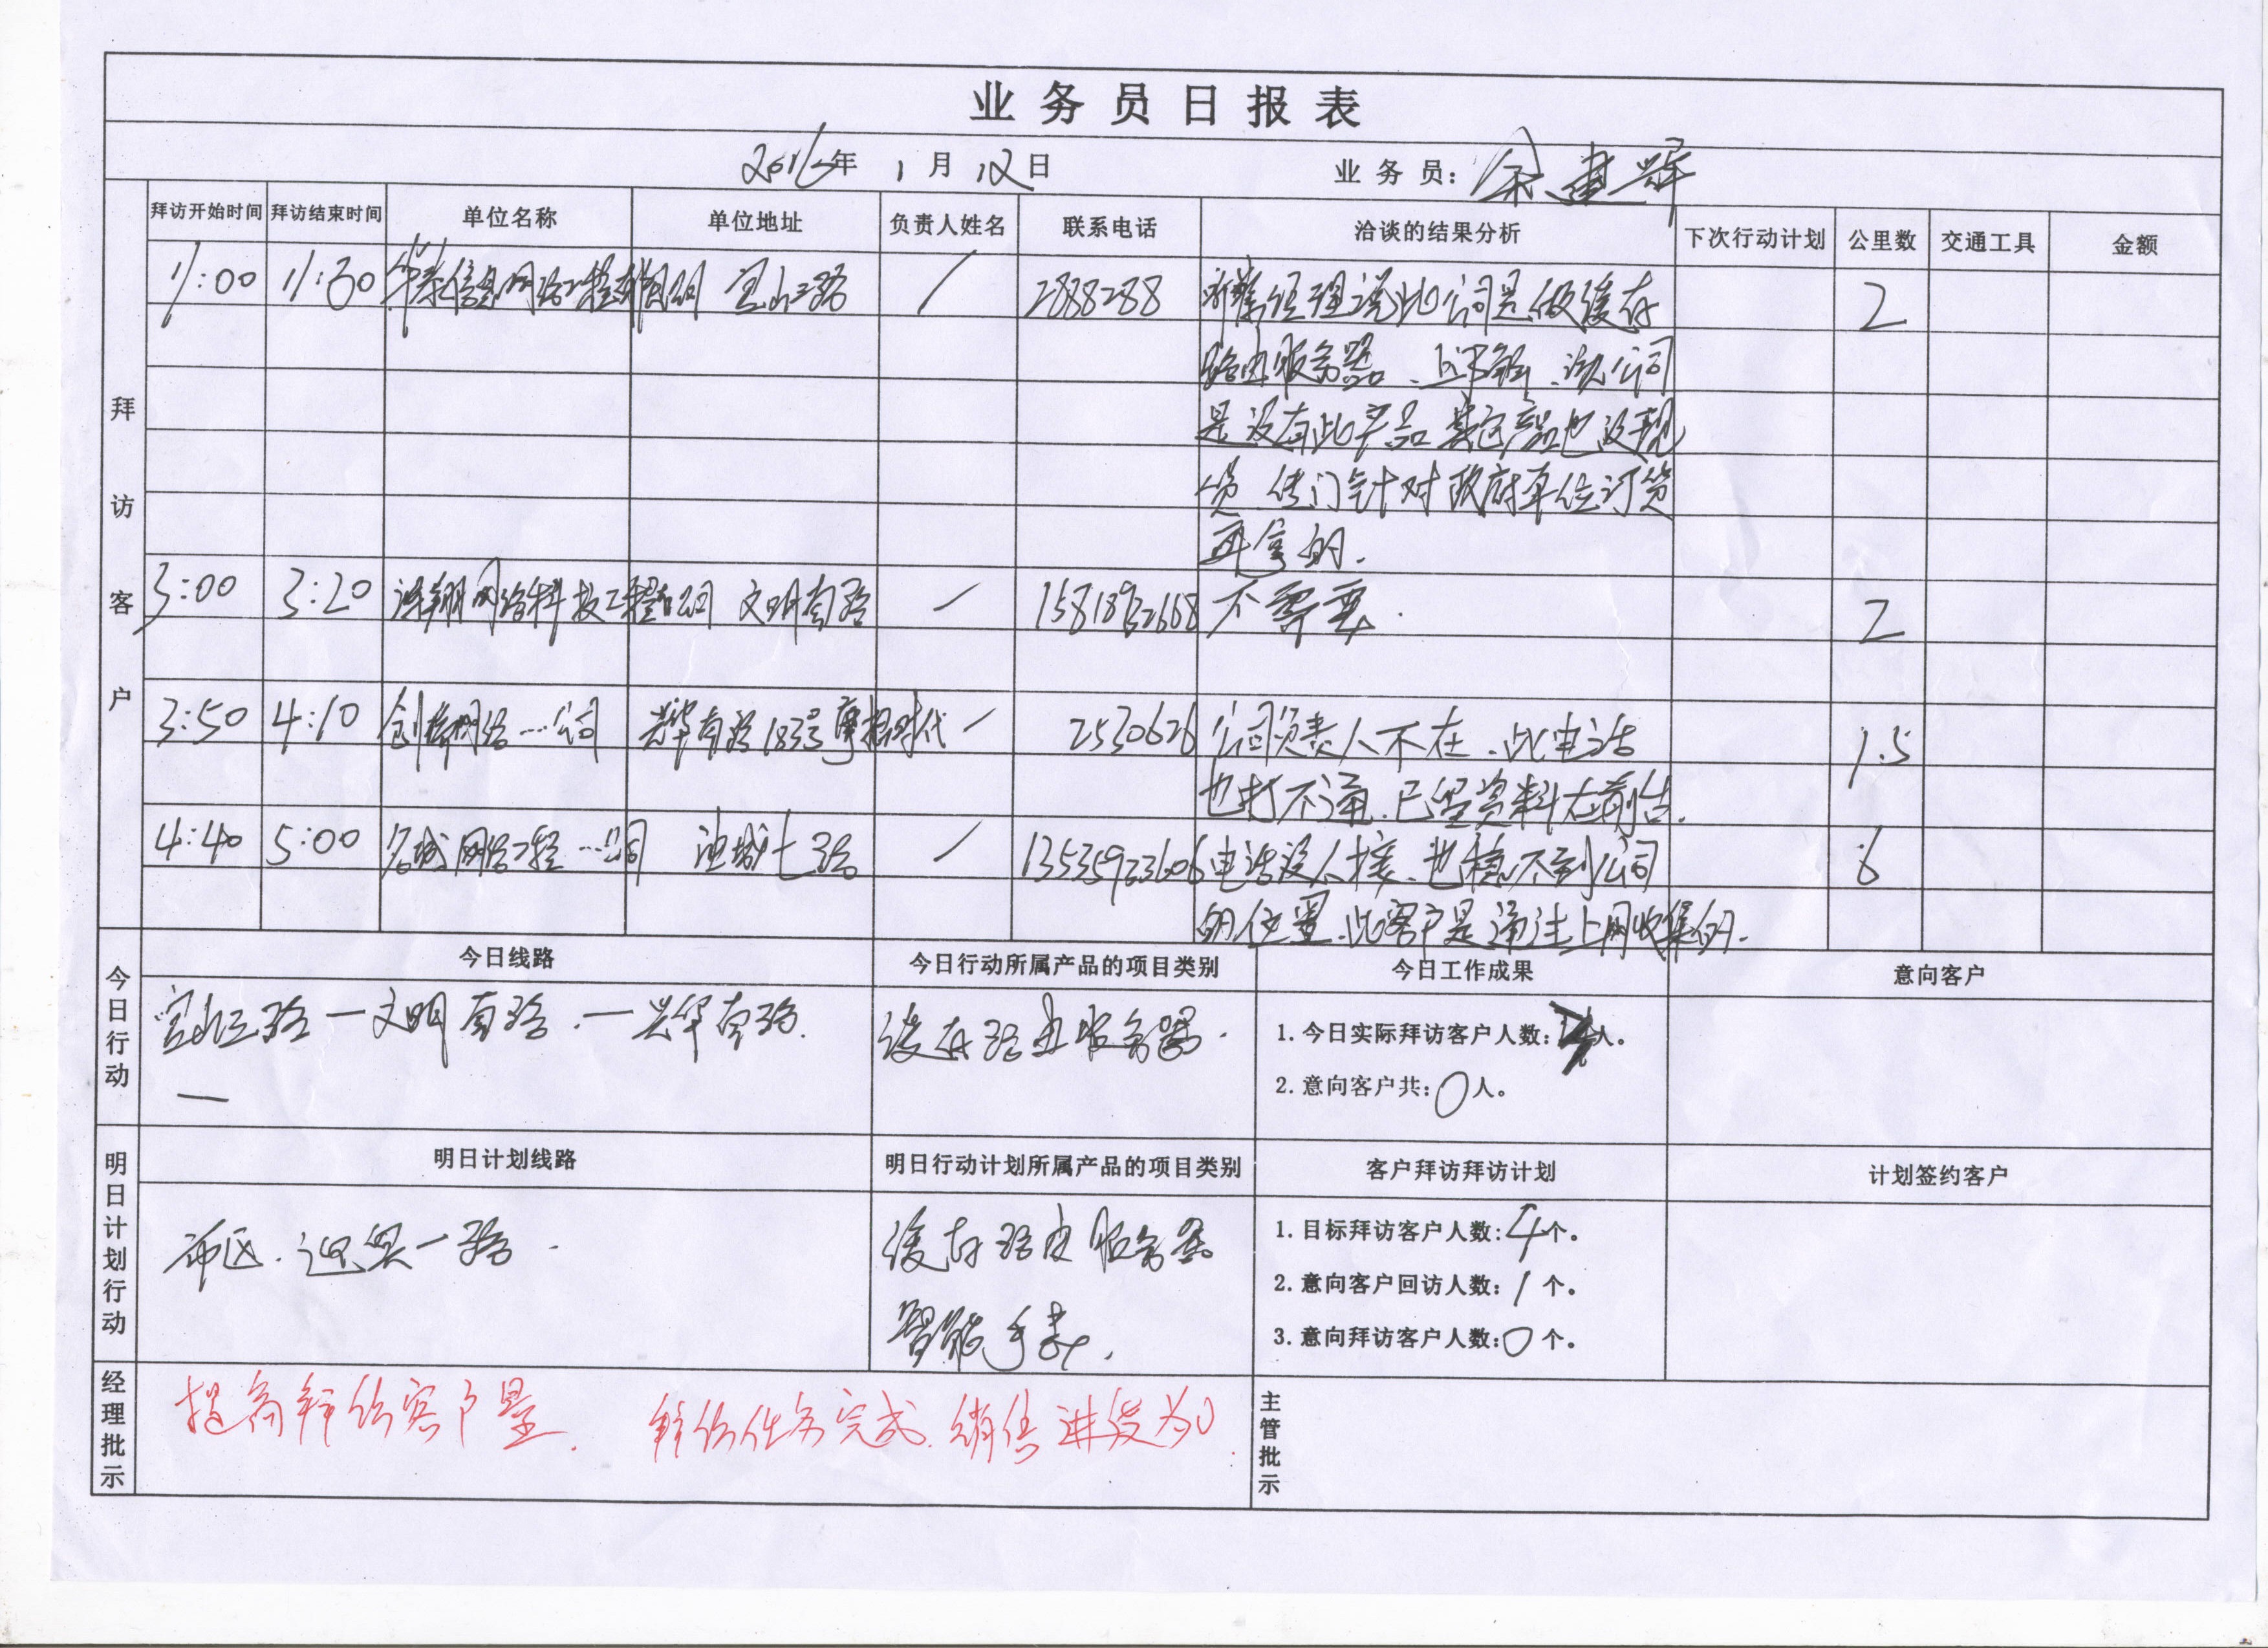 业务员日报表
2016年 1月 12日 业务员: 余建辉
拜访客户
拜访开始时间 拜访结束时间 单位名称 单位地址 负责人姓名 联系电话 洽谈的结果分析 下次行动计划 公里数 交通工具 金额
11:00 11:30 信息网络工程有限公司 宝山三路 / 2888288 经理说此公司是做缓存 2
路由服务器、公司
是没有此产品 其它产品也没现
货 针对政府单位订货
再拿的.
3:00 3:20 翔网络科技工程公司 文明南路 / 不需要. 2
3:50 4:10 创 网络…公司 兴华南路183号摩根时代 / 2530626 公司负责人不在、此电话 1.5
也打不通、已留资料在前台.
4:40 5:00 名城网络工程…公司 七路 / 13535923606 电话没人接、也找不到公司 6
的位置、此客户是通过上网收集的.
今日行动
今日线路 今日行动所属产品的项目类别 今日工作成果 意向客户
宝山三路—文明南路.—兴华南路.
—
缓存路由服务器.
1.今日实际拜访客户人数: 4人。
2.意向客户共: 0人。
明日计划行动
明日计划线路 明日行动计划所属产品的项目类别 客户拜访拜访计划 计划签约客户
市区.迎宾一路.
缓存路由服务器
智能手表.
1.目标拜访客户人数: 4个。
2.意向客户回访人数: 1个。
3.意向拜访客户人数: 0个。
经理批示
提高拜访客户量. 拜访任务完成.销售进度为0.
主管批示